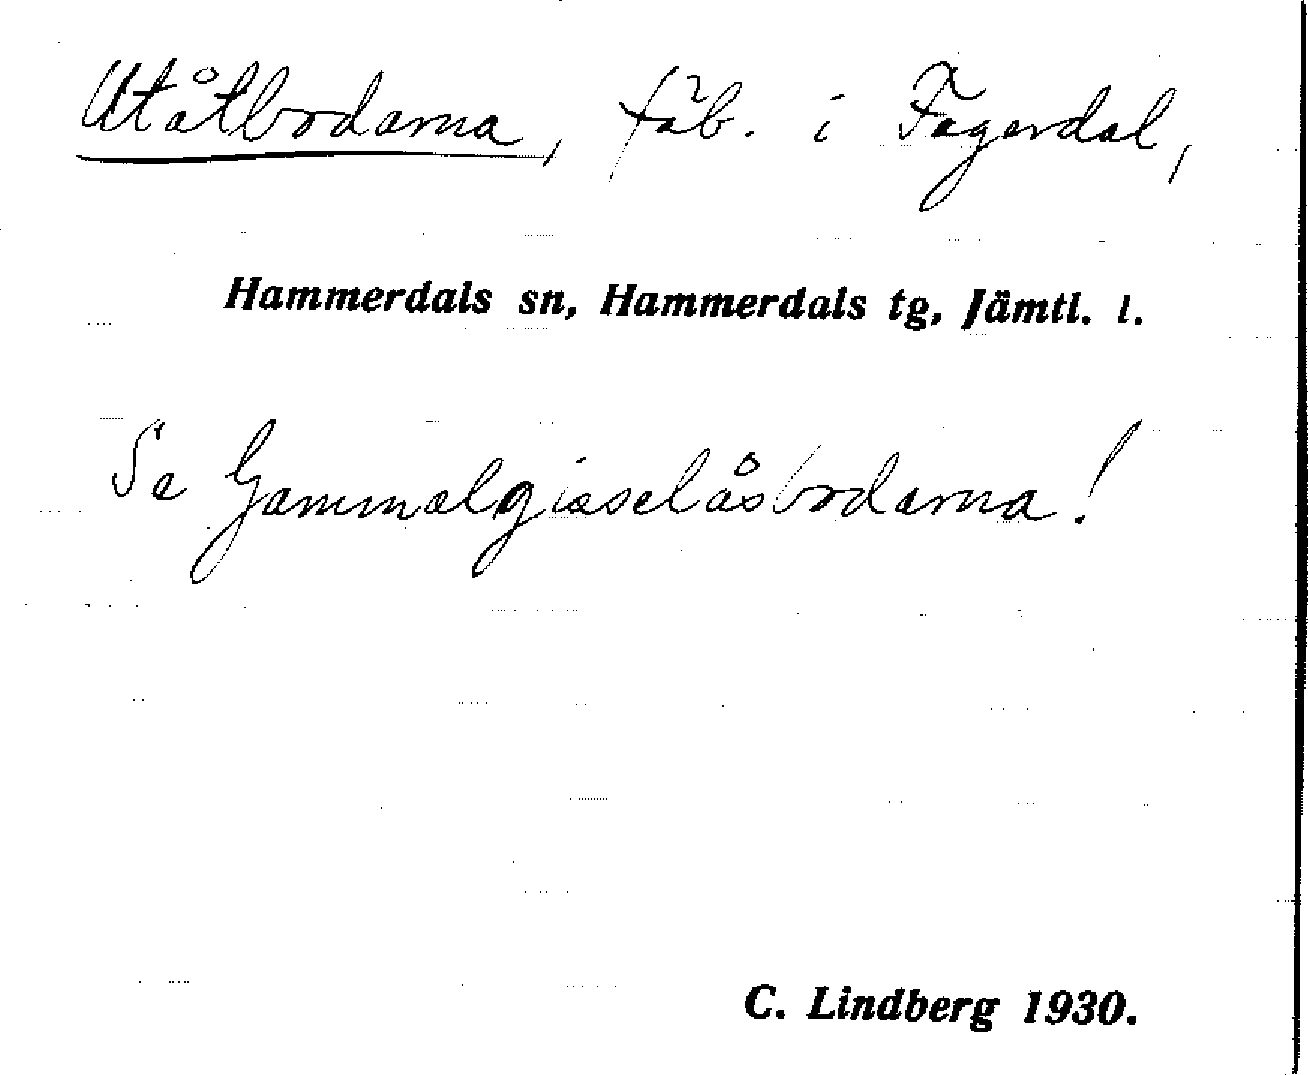 Utåtbodarna, fäb. i Fagerdal,
Hammerdals sn, Hammerdals tg, Jämtl. l.
Se Gammalgisselåsbodarna!
C. Lindberg 1930.